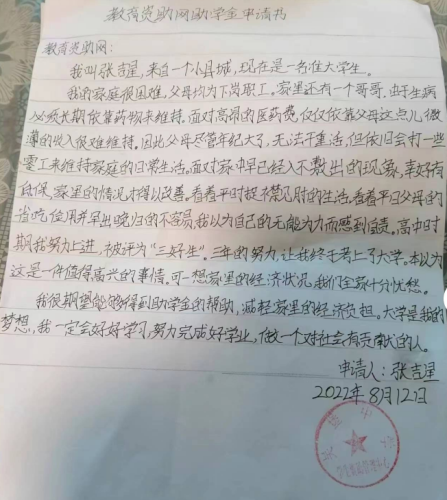 教育资助网助学金申请书
教育资助网：
我叫张吉星，来自一个小县城，现在是一名准大学生。
我的家庭很困难，父母均为下岗职工，家里还有一个哥哥，由于生病
必须长期依靠药物来维持，面对高昂的医药费，仅仅依靠父母这点儿微
薄的收入很难维持。因此父母尽管年纪大了，无法干重活，但依旧会打一些
零工来维持家庭的日常生活，面对家中早已经入不敷出的现象，幸好有
低保，家里的情况才得以改善，看着平时捉襟见肘的生活，看着平日父母的
省吃俭用并早出晚归的不容易，我以为自己的无能为力而感到自责，高中时
期我努力上进，被评为“三好生”。三年的努力，让我终于考上了大学，本以为
这是一件值得高兴的事情，可一想家里的经济状况，我们全家十分忧愁。
我很期望能够得到助学金的帮助，减轻家里的经济负担，大学是我的
梦想，我一定会好好学习，努力完成好学业，做一个对社会有贡献的人。
申请人：张吉星
2022年8月12日